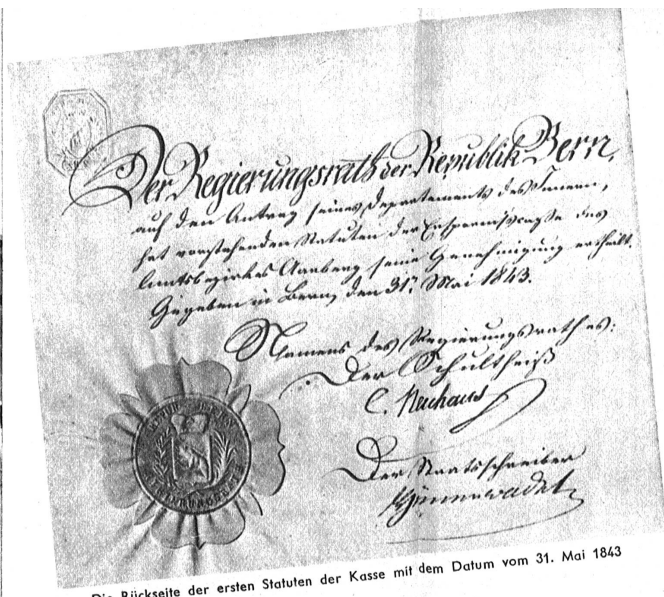 Der Regierungsrath der Republik Bern,
auf den Antrag seines Departements des Innern,
hat vorstehenden Statuten der Ersparnißcasse des
Amtsbezirkes Aarberg seine Genehmigung ertheilt.
Gegeben in Bern, den 31. Mai 1843.
Namens des Regierungsrathes:
Der Schultheiß
C. Neuhaus
Der Staatsschreiber
Die Rückseite der ersten Statuten der Kasse mit dem Datum vom 31. Mai 1843